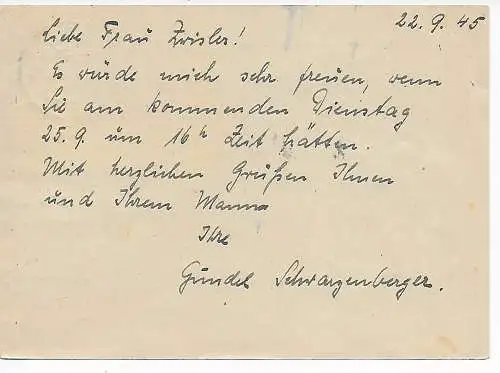 22.9.45
Liebe Frau Zwisler!
Es würde mich sehr freuen, wenn
Sie am kommenden Dienstag
25.9. um 16h Zeit hätten.
Mit herzlichen Grüßen Ihnen
und Ihrem Manne
Ihre
Gündel Schwarzenberger.